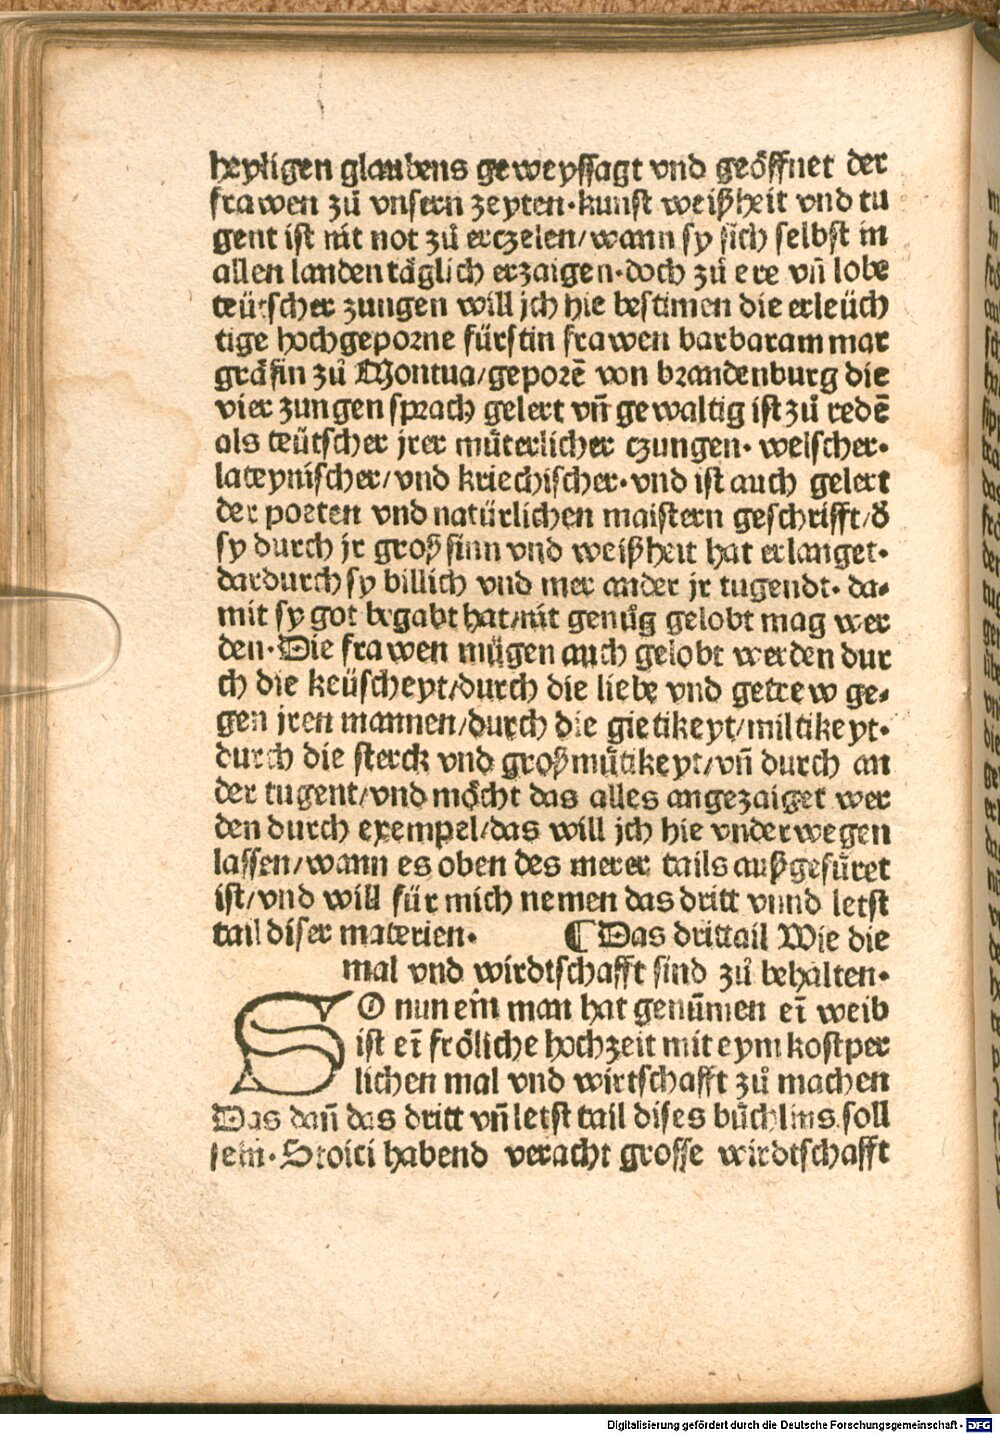 heyligen glaubens geweyssagt vnd geöffnet der
frawen zů vnsern zeyten·kunst weißheit vnd tu
gent ist nit not zů erczelen/wann sy sich selbst in
allen landen täglich erzaigen·doch zů ere vn̄ lobe
teütscher zungen will jch hie bestimen die erleüch
tige hochgeporne fürstin frawen barbaram mar
gräfin zů Montua/geporē von brandenburg die
vier zungen sprach gelert vn̄ gewaltig ist zů redē
als teütscher jrer müterlicher czungen· welscher·
lateynischer/vnd kriechischer·vnd ist auch gelert
der poeten vnd natürlichen maistern geschrifft/ð
sy durch jr groß sinn vnd weißheit hat erlanget·
dardurch sy billich vnd mer ander jr tugendt· da⸗
mit sy got begabt hat/nit genůg gelobt mag wer
den·Die frawen mügen auch gelobt werden dur
ch die keüscheyt/durch die liebe vnd getrew ge⸗
gen jren mannen/durch die gietikeyt/miltikeyt·
durch die sterck vnd großmütikeyt/vn̄ durch an
der tugent/vnd möcht das alles angezaiget wer
den durch exempel/das will jch hie vnderwegen
lassen/wann es oben des merer tails außgefüret
ist/vnd will für mich nemen das dritt vnnd letst
tail diser materien· ¶ Das drittail Wie die
mal vnd wirdtschafft sind zů behalten·
SO nun ein man hat genūmen eī weib
ist eī fröliche hochzeit mit eym kostper
lichen mal vnd wirtschafft zů machen
Das dan̄ das dritt vn̄ letst tail dises büchlins soll
sein·Stoici habend veracht grosse wirdtschafft
Digitalisierung gefördert durch die Deutsche Forschungsgemeinschaft - DFG